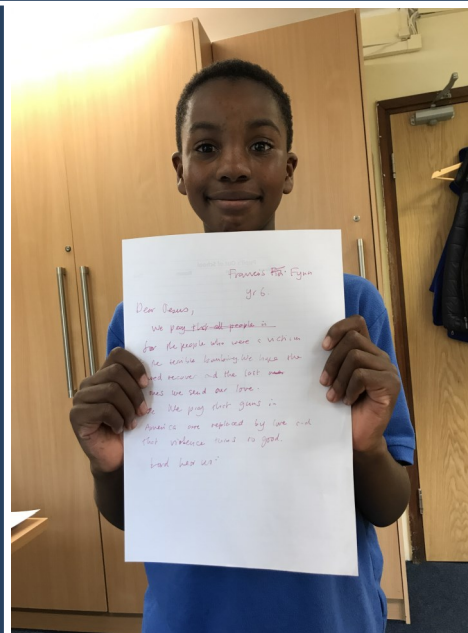 Frances Fynn
yr 6
Dear Jesus,
We pray that all people in
for the people who were a victim
the we hope the
recover and the lost
ones we send our love.
We pray that guns in
America are replaced by love and
that violence turns to good.
Lord hear us!